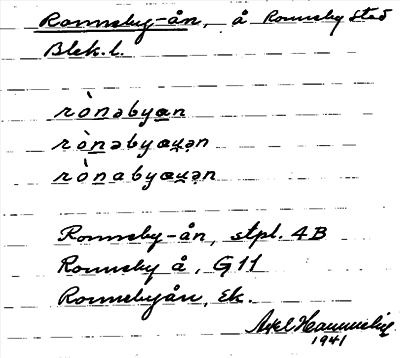 Ronneby-ån, å Ronneby stad
Blek. l.
rònəbyan
rònəbyau̯ən
rònabyau̯ən
Ronneby-ån, stpl. 4B
Ronneby å, G11
Ronnebyån, Ek.
Axel
1941